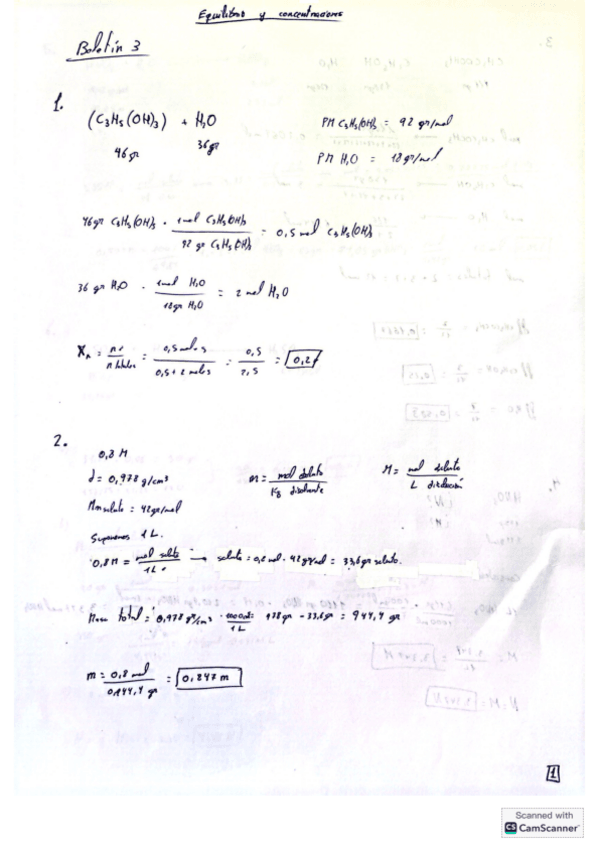 Equilibrio y concentraciones
Boletín 3
1.
(C3H5(OH)3) + H2O
46gr 36gr
PM C3H5(OH)3 = 92 gr/mol
PM H2O = 18 gr/mol
46gr C3H5(OH)3 · 1mol C3H5(OH)3 / 92 gr C3H5(OH)3 = 0,5 mol C3H5(OH)3
36 gr H2O · 1mol H2O / 18gr H2O = 2 mol H2O
= 0,5 moles / 0,5 + 2 moles = 0,5 / 2,5 =
2.
0,8 M
d = 0,978 g/cm3
= 42gr/mol
m = mol soluto / Kg disolvente
M = mol soluto / L disolución
Suponemos 1 L.
0,8 M = mol soluto / 1L → soluto = 0,8 mol · 42 gr/mol = 33,6gr soluto.
Masa total = 0,978 gr/cm3 · = 978 gr - 33,6gr = 944,4 gr
m = 0,8 mol / = 0,847 m
1
Scanned with
CS CamScanner